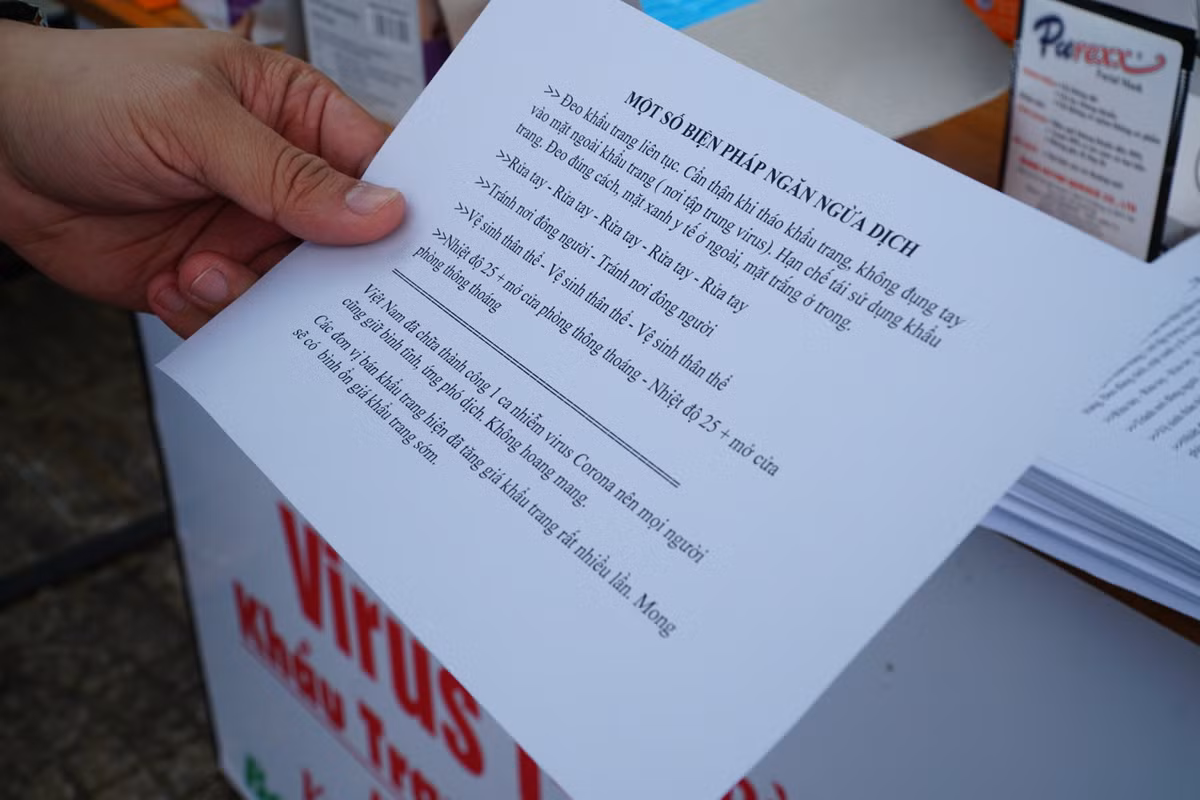 MỘT SỐ BIỆN PHÁP NGĂN NGỪA DỊCH
>> Đeo khẩu trang liên tục. Cẩn thận khi tháo khẩu trang, không đụng tay
vào mặt ngoài khẩu trang ( nơi tập trung virus). Hạn chế tái sử dụng khẩu
trang. Đeo đúng cách, mặt xanh y tế ở ngoài, mặt trắng ở trong.
>>Rửa tay - Rửa tay - Rửa tay - Rửa tay - Rửa tay
>>Tránh nơi đông người - Tránh nơi đông người
>>Vệ sinh thân thể - Vệ sinh thân thể - Vệ sinh thân thể
>>Nhiệt độ 25 + mở cửa phòng thông thoáng - Nhiệt độ 25 + mở cửa
phòng thông thoáng
Việt Nam đã chữa thành công 1 ca nhiễm virus Corona nên mọi người
cũng giữ bình tĩnh, ứng phó dịch. Không hoang mang.
Các đơn vị bán khẩu trang hiện đã tăng giá khẩu trang rất nhiều lần. Mong
sẽ có bình ổn giá khẩu trang sớm.
Purexx
Facial Mask
Virus
Khẩu